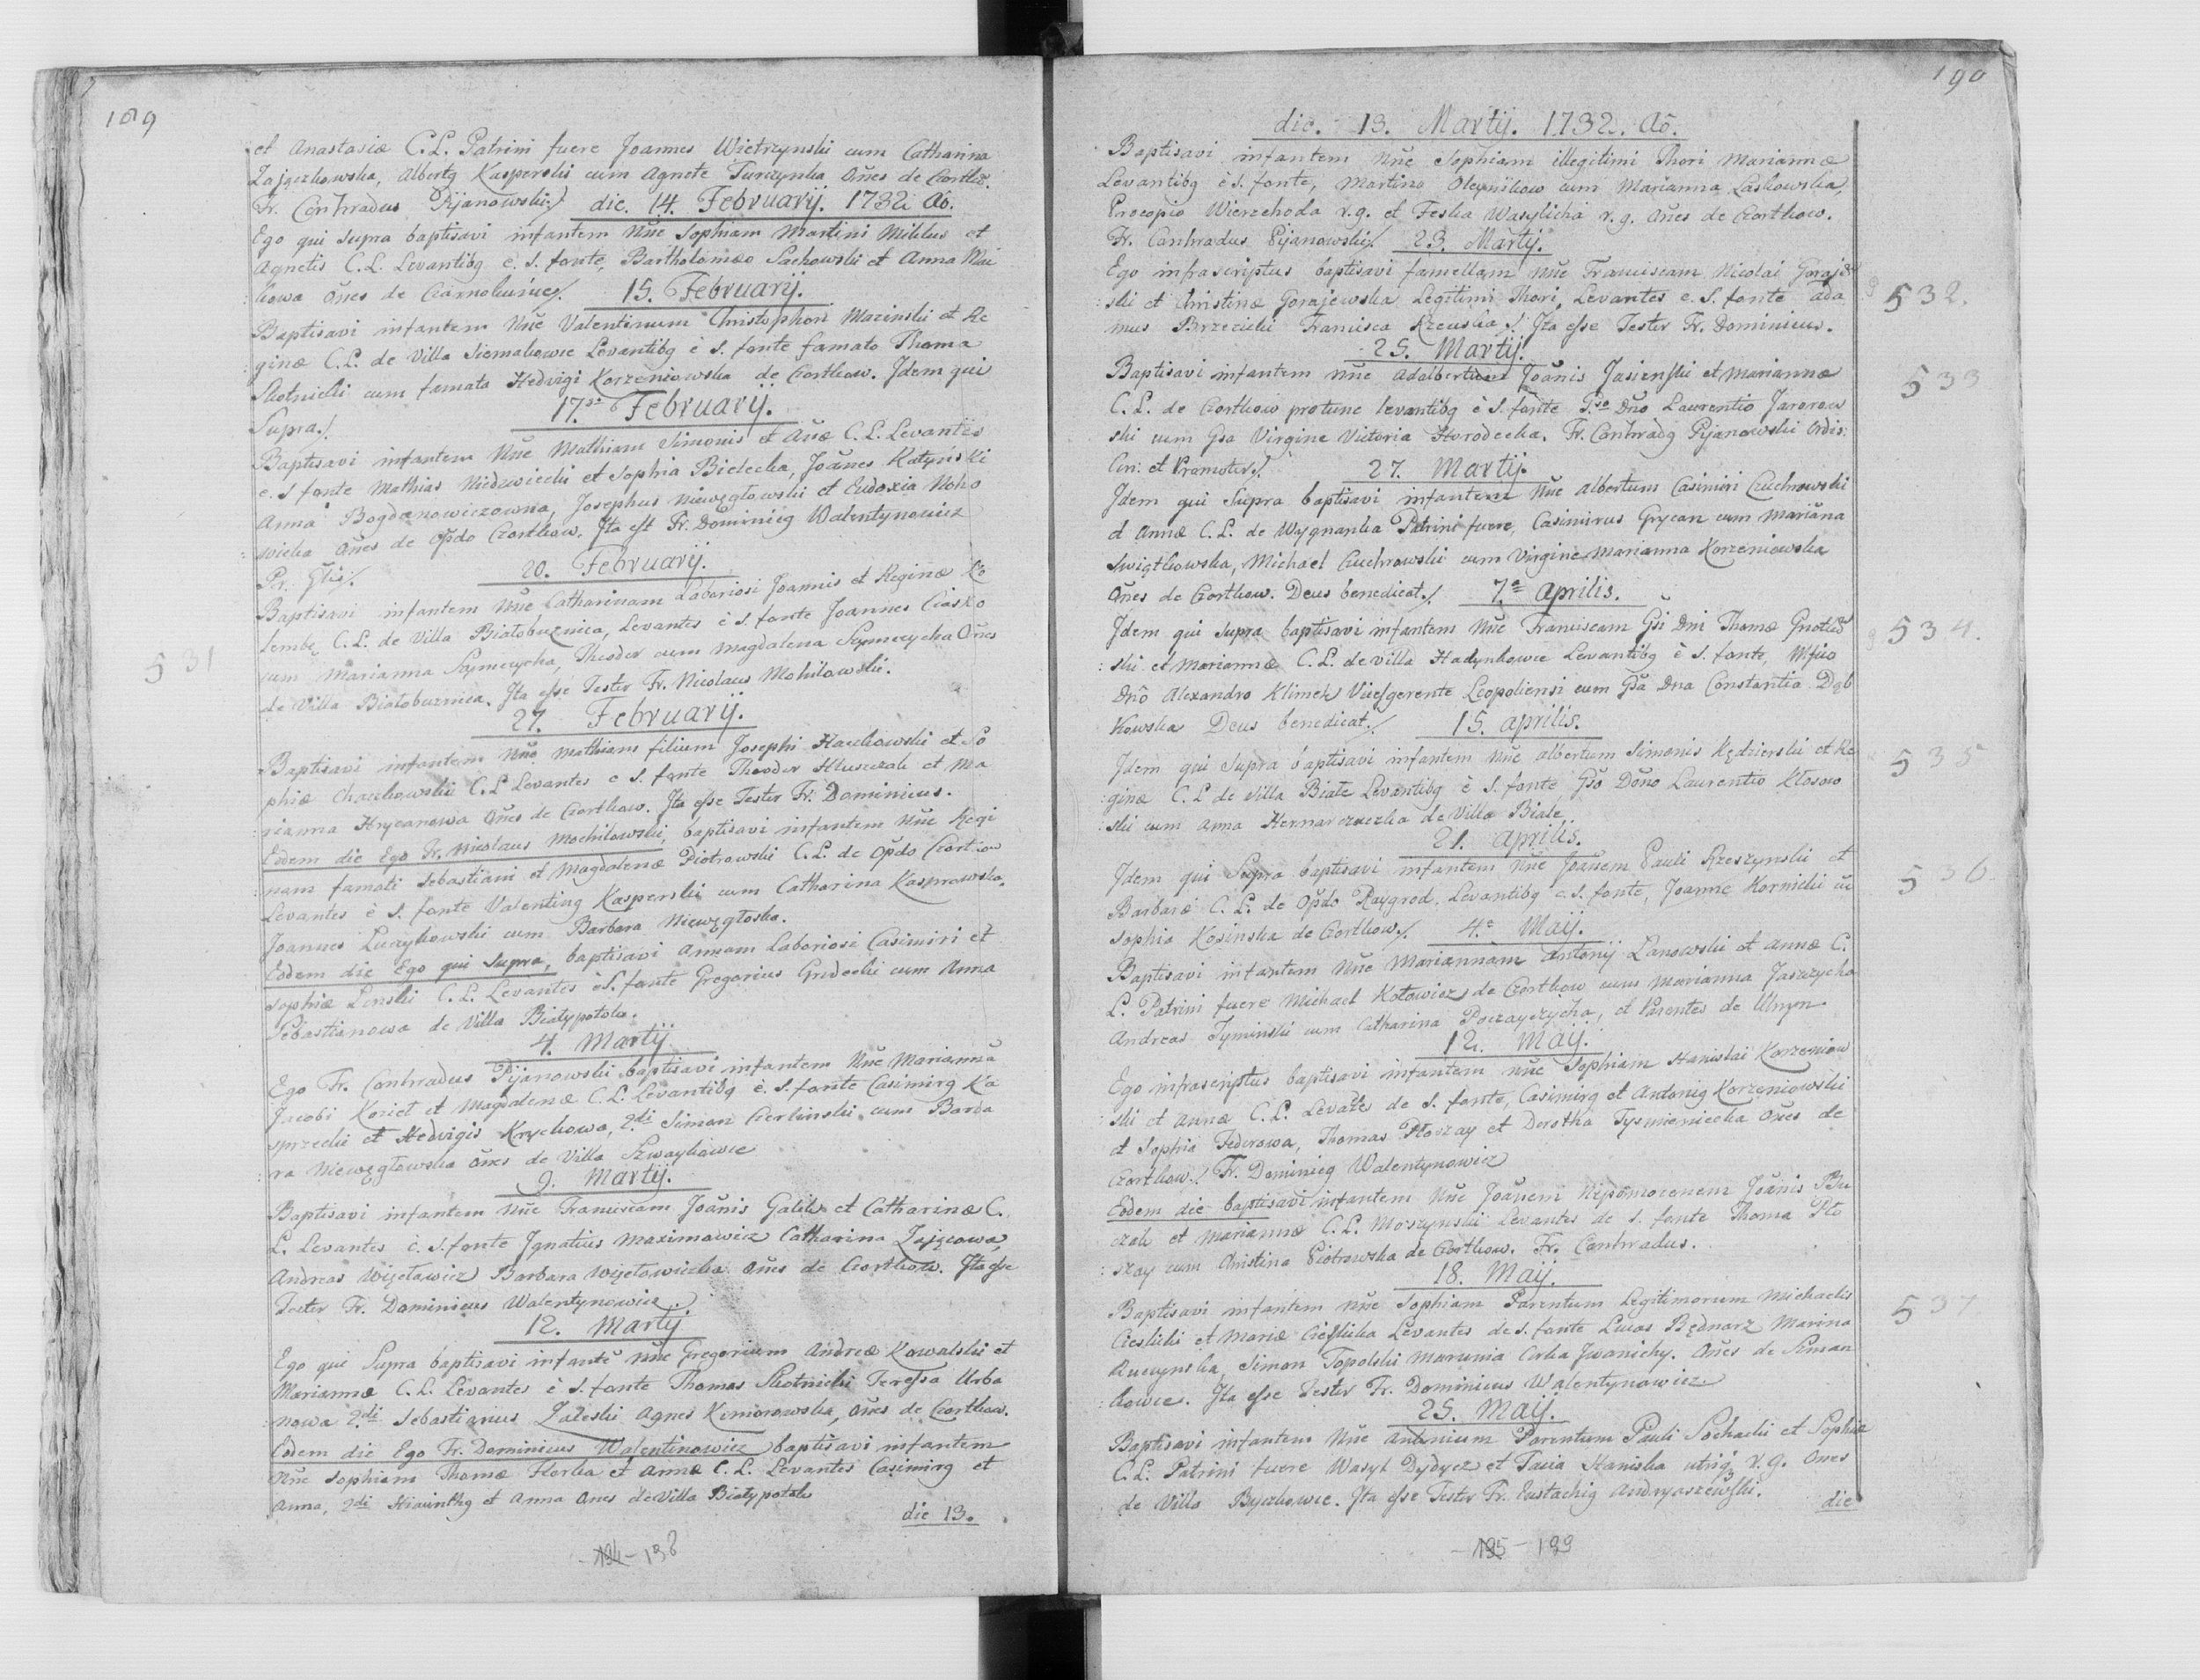 189
et Anastasiæ C.L. Patrini fuere Joannes Wietrzynski cum Catharina
Zajączkowska, Albertg Kasperski cum Agnete Turczynka Oñes de Czortko.
Fr. Conhradus Pijanowski./. die. 14. Februarij. 1732. Aõ.
Ego qui supra baptisavi infantem Nñe Sophiam Martini Mikluß et
Agnetis C.L. Levantibg è. S. fonte, Bartholomæo Sachowski et Anna Mai
kowa Oñes de Czarnokunice/. 15. Februarij.
Baptisavi infantem Nñe Valentinum Christophori Mazinski et Re
ginæ C.L. de Villa Siemakowce Levantibg è S. fonte famato Thoma
Skotnicki cum famata Hedvigi Korzeniowska de Czortkow. Jdem qui
Supra./. 17ma Februarij.
Baptisavi infantem Nñe Mathiam Simonis et Añæ C.L. Levantes
e. S fonte Mathias Niedzwiecki et Sophia Bielecka, Joañes Katynski
Anna Bogdanowiczowna, Josephus Niewęgłowski et Eudoxia Woho
wicka Oñes de Opdo Czortkow. Jta est Fr. Dominicg Walentynowicz
Pr. Glis/. 20. Februarij.
Baptisavi infantem Nñe Catharinam Laboriosi Joannis et Reginæ Ko
lembę C.L. de Villa Białobuznica, Levantes è S. fonte Joannes Ciasko
cum Marianna Szymczycha, Theodor cum Magdalena Szymczycha Oñes
de Villa Białobuznica. Jta esse Testor Fr. Nicolaus Mohilowski.
531
27. Februarij.
Baptisavi infantem Nñe Mathiam filium Josephi Hackowski et So
phiæ Chackowski C.L Levantes e S. fonte Theodor Hluszczak et Ma
rianna Hrycanowa Oñes de Czortkow. Jta esse Testor Fr. Dominicus.
Eodem die Ego Fr. Nicolaus Mochilowski, baptisavi infantem Nñe Regi
nam famati Sebastiani et Magdalenæ Piotrowski C.L. de Opdo Czortkow
Levantes è S. fonte Valenting Kasperski cum Catharina Kasprowska,
Joannes Luczykowski cum Barbara Niewęgłoska.
Eodem die Ego qui Supra, baptisavi Annam Laboriosi Casimiri et
Sophiæ Linski C.L. Levantes è S. fonte Gregorius Gridecki cum Anna
Sebastianowa de Villa Białypotok.
4. Martij
Ego Fr. Conhradus Pijanowski baptisavi infantem Nñe Mariannã
Jacobi Koziet et Magdalenæ C.L. Levantibg è. S. fonte Casimirg Ka
sprzecki et Hedvigis Krychowa, 2di Simon Czerlinski cum Barba
ra Niewęgłowska Oñes de Villa Szwaykowce
9. Martij.
Baptisavi infantem Nñe Franciscam Joãnis Galik et Catharinæ C.
L. Levantes è. S. fonte Jgnatius Maximowicz Catharina Zajęcowa,
Andreas Więcławicz Barbara Więcłowiczka Oñes de Czortkow. Jta esse
Testor Fr. Dominicus Walentynowicz
12. Martij
Ego qui Supra baptisavi infantẽ Nñe Gregorium Andreæ Kowalski et
Mariannæ C.L. Levantes è S. fonte Thomas Skotnicki Teressa Urba
nowa 2di Sebastianus Zaleski Agnes Kimorowska, Oñes de Czortkow.
Eodem die Ego Fr. Dominicus Walentinowicz baptisavi infantem
Nñe Sophiam Thomæ Horba et Annæ C.L. Levantes Casimirg et
Anna, 2di Hiacinthg et Anna Ones de Villa Białypotok
die 13.
194 - 198
190
die. 13. Martij. 1732. Aõ.
Baptisavi infantem Nñe Sophiam illegitimi Thori Mariannæ
Levantibg è S. fonte, Martino Oleynikow cum Marianna Laskowska,
Procopio Wierzchoda r.g. et Feska Wasylicha r.g. Oñes de Czortkow.
Fr. Conhradus Pijanowski/. 23. Martij.
Ego infrascriptus baptisavi famellam Nñe Franciscam Nicolai Gorajew
ski et Christinæ Gorajewska Legitimi Thori, Levantes e. S. fonte Ada
mus Brzezicki Francisca Rzewska/. Jta esse Testor Fr. Dominicus.
532.
25. Martij.
Baptisavi infantem Nñe Adalbertum Joãnis Jasienski et Mariannæ
C.L. de Czortkow protunc levantibg è S. fonte Gso Dño Laurentio Jaworow
ski cum Gsa Virgine Victoria Horodecka. Fr. Conhradg Pijanowski Ordis:
Con: et Promotor./. 27. Martij.
533
Jdem qui Supra baptisavi infantem Nñe Albertum Casimiri Czuchrowski
et Annæ C.L. de Wygnanka Patrini fuere, Casimirus Grycan cum Mariãna
Swiątkowska, Michael Czuchrowski cum Virgine Marianna Korzeniowska
Oñes de Czortkow. Deus benedicat./. 7ma Aprilis.
Jdem qui Supra baptisavi infantem Nñe Franciscam Gsi Dni Thomæ Gnotow
ski et Mariannæ C.L. de Villa Hadynkowce Levantibg è S. fonte, Mfico
Dnõ Alexandro Klimek Vicesgerente Leopoliensi cum Gsa Dna Constantia Dąb
kowska Deus benedicat./. 15. Aprilis.
534.
Jdem qui Supra baptisavi infantem Nñe Albertum Simonis Kędzierski et Re
ginæ C.L de Villa Białe Levantibg è S. fonte Gso Dõno Laurentio Kłosow
ski cum Anna Hernarczuczka de Villa Białe,
535
21. Aprilis.
Jdem qui Supra baptisavi infantem Nñe Joãnem Pauli Rzeszynski et
Barbaræ C.L. de Opdo Raygrod. Levantibg è S. fonte, Joanne Kornicki cũ
Sophia Kosinska de Czortkow/. 4ta Maij.
536
Baptisavi infantem Nñe Mariannam Antonij Lanowski et Annæ C.
L. Patrini fuere Michael Kotowicz de Czortkow cum Marianna Jaszczycha
Andreas Tyminski cum Catharina Poczayczycha, et Parentes de Ulryn
12. Maij.
Ego infrascriptus baptisavi infantem Nñe Sophiam Stanislai Korzeniow
ski et Annæ C.L. Levãtes de S. fonte, Casimirg et Antonig Korzeniowski
et Sophia Federowa, Thomas Płoszay et Dorotha Tysmieniecka Oñes de
Czortkow./. Fr. Dominicg Walentynowicz
Eodem die baptisavi infantem Nñe Joãnem Nepomocenem Joãnis Bu
czak et Mariannæ C.L. Moszynski Levantes de S. fonte Thoma Pło
szay cum Christina Piotrowska de Czortkow. Fr. Conhradus.
18. Maij.
Baptisavi infantem Nñe Sophiam Parentum Legitimorum Michaelis
Cieslicki et Mariæ Cieslicka Levantes de S. fonte Lucas Będnarz Marina
Auczynska, Simon Topolski Marunia Corka Jwanichy. Oñes de Siman
kowce. Jta esse Testor Fr. Dominicus Walentynowicz
537
25. Maij.
Baptisavi infantem Nñe Antonium Parentum Pauli Sochacki et Sophiæ
C.L. Patrini fuere Wasyl Dydycz et Tacia Haniska utrig r.g. Ones
de Villa Byczkowce. Jta esse Testor Fr. Eustachig Andryaszewski.
die
195 - 199